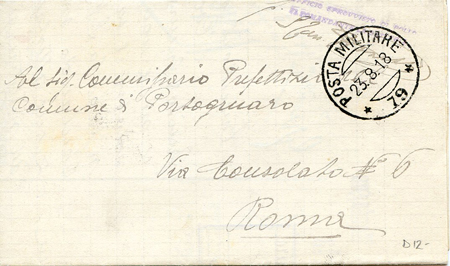 POSTA MILITARE
23.8.18
* 79 *
Al Sig. Commissario Prefettizio
Comune di Portogruaro
Via Consolato N 6
Roma
D12-